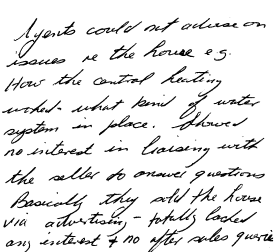 Agents could not advise on
issues re the house e.g.
How the central heating
worked - what kind of water
system in place. Showed
no interest in liaising with
the seller to answer questions
Basically they sold the house
via advertising - totally lacked
any interest + no after sales querie